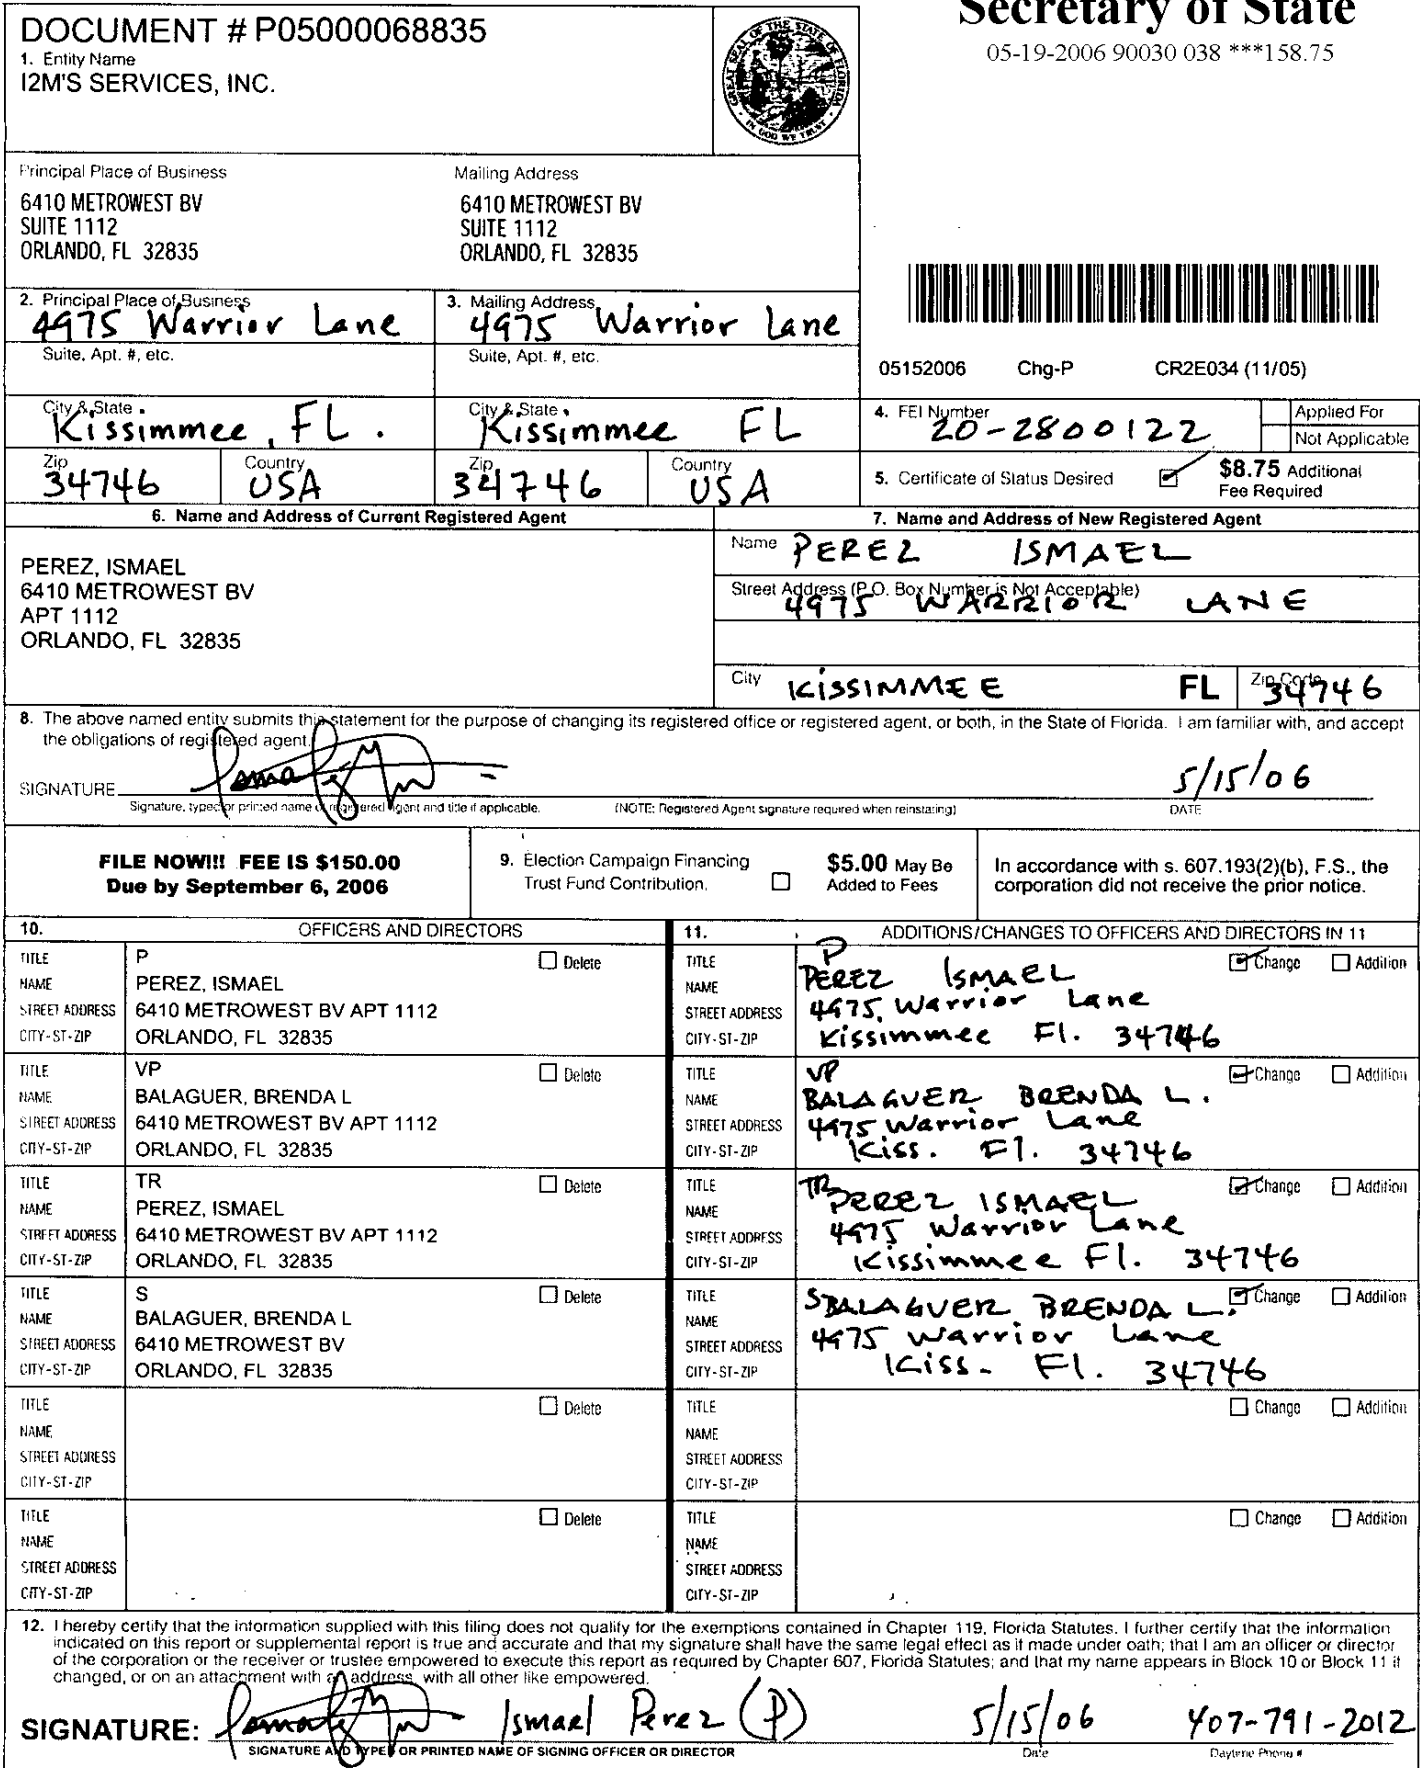 Secretary of State
05-19-2006 90030 038 ***158.75
DOCUMENT # P05000068835
1. Entity Name
I2M'S SERVICES, INC.
GREAT SEAL OF THE STATE OF FLORIDA
IN GOD WE TRUST
Principal Place of Business
6410 METROWEST BV
SUITE 1112
ORLANDO, FL 32835
Mailing Address
6410 METROWEST BV
SUITE 1112
ORLANDO, FL 32835
2. Principal Place of Business
4975 Warrior Lane
Suite, Apt. #, etc.
City & State
Kissimmee, FL.
Zip
34746
Country
USA
3. Mailing Address
4975 Warrior Lane
Suite, Apt. #, etc.
City & State
Kissimmee FL
Zip
34746
Country
USA
05152006 Chg-P CR2E034 (11/05)
4. FEI Number
20-2800122
Applied For
Not Applicable
5. Certificate of Status Desired
$8.75 Additional
Fee Required
6. Name and Address of Current Registered Agent
PEREZ, ISMAEL
6410 METROWEST BV
APT 1112
ORLANDO, FL 32835
7. Name and Address of New Registered Agent
Name PEREZ ISMAEL
Street Address (P.O. Box Number is Not Acceptable)
4975 WARRIOR LANE
City KISSIMMEE FL Zip Code 34746
8. The above named entity submits this statement for the purpose of changing its registered office or registered agent, or both, in the State of Florida. I am familiar with, and accept
the obligations of registered agent.
SIGNATURE 5/15/06
Signature, typed or printed name of registered agent and title if applicable. (NOTE: Registered Agent signature required when reinstating) DATE
FILE NOW!!! FEE IS $150.00
Due by September 6, 2006
9. Election Campaign Financing
Trust Fund Contribution.
$5.00 May Be
Added to Fees
In accordance with s. 607.193(2)(b), F.S., the
corporation did not receive the prior notice.
10. OFFICERS AND DIRECTORS
TITLE P Delete
NAME PEREZ, ISMAEL
STREET ADDRESS 6410 METROWEST BV APT 1112
CITY-ST-ZIP ORLANDO, FL 32835
TITLE VP Delete
NAME BALAGUER, BRENDA L
STREET ADDRESS 6410 METROWEST BV APT 1112
CITY-ST-ZIP ORLANDO, FL 32835
TITLE TR Delete
NAME PEREZ, ISMAEL
STREET ADDRESS 6410 METROWEST BV APT 1112
CITY-ST-ZIP ORLANDO, FL 32835
TITLE S Delete
NAME BALAGUER, BRENDA L
STREET ADDRESS 6410 METROWEST BV
CITY-ST-ZIP ORLANDO, FL 32835
TITLE Delete
NAME
STREET ADDRESS
CITY-ST-ZIP
TITLE Delete
NAME
STREET ADDRESS
CITY-ST-ZIP
11. ADDITIONS/CHANGES TO OFFICERS AND DIRECTORS IN 11
TITLE P Change Addition
NAME PEREZ ISMAEL
STREET ADDRESS 4975, Warrior Lane
CITY-ST-ZIP Kissimmee Fl. 34746
TITLE VP Change Addition
NAME BALAGUER BRENDA L.
STREET ADDRESS 4975 Warrior Lane
CITY-ST-ZIP Kiss. Fl. 34746
TITLE TR Change Addition
NAME PEREZ ISMAEL
STREET ADDRESS 4975 Warrior Lane
CITY-ST-ZIP Kissimmee Fl. 34746
TITLE S Change Addition
NAME BALAGUER BRENDA L.
STREET ADDRESS 4975 Warrior Lane
CITY-ST-ZIP Kiss. Fl. 34746
TITLE Change Addition
NAME
STREET ADDRESS
CITY-ST-ZIP
TITLE Change Addition
NAME
STREET ADDRESS
CITY-ST-ZIP
12. I hereby certify that the information supplied with this filing does not qualify for the exemptions contained in Chapter 119, Florida Statutes. I further certify that the information
indicated on this report or supplemental report is true and accurate and that my signature shall have the same legal effect as if made under oath; that I am an officer or director
of the corporation or the receiver or trustee empowered to execute this report as required by Chapter 607, Florida Statutes; and that my name appears in Block 10 or Block 11 if
changed, or on an attachment with an address, with all other like empowered.
SIGNATURE: Ismael Perez (P) 5/15/06 407-791-2012
SIGNATURE AND TYPED OR PRINTED NAME OF SIGNING OFFICER OR DIRECTOR Date Daytime Phone #